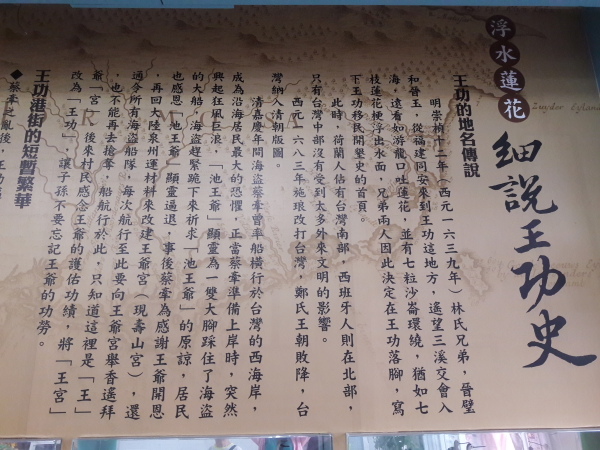 浮水蓮花
細說王功史
王功的地名傳說
明崇禎十二年(西元一六三九年)林氏兄弟,晉壁
和晉玉,從福建同安來到王功這地方,遙望三溪交會入
海,遠看如游龍口吐蓮花,並有七粒沙崙環繞,猶如七
枝蓮花梗浮出水面,兄弟兩人因此決定在王功落腳,寫
下王功移民開墾史的首頁。
此時,荷蘭人佔有台灣南部,西班牙人則在北部,
只有台灣中部沒有受到太多外來文明的影響。
西元一六八三年施琅攻打台灣,鄭氏王朝敗降,台
灣納入清朝版圖。
清嘉慶年間海盜蔡牽曾率船橫行於台灣的西海岸,
成為沿海居民最大的恐懼,正當蔡牽準備上岸時,突然
興起狂風巨浪,「池王爺」顯靈為一雙大腳踩住了海盜
的大船,海盜趕緊跪下來祈求「池王爺」的原諒,居民
也感恩「池王爺」顯靈逼退,事後蔡牽為感謝王爺開恩
,再回大陸泉州運材料來改建王爺宮(現壽山宮),還
通令所有海盜船隊,每次航行至此要向王爺宮舉香遙拜
,也不能再去搶奪,船航行於此,只知道這裡是「王」
爺「宮」。後來村民感念王爺的護佑功績,將「王宮」
改為「王功」,讓子孫不要忘記王爺的功勞。
王功港街的短暫繁華
◆蔡牽之亂後,王功